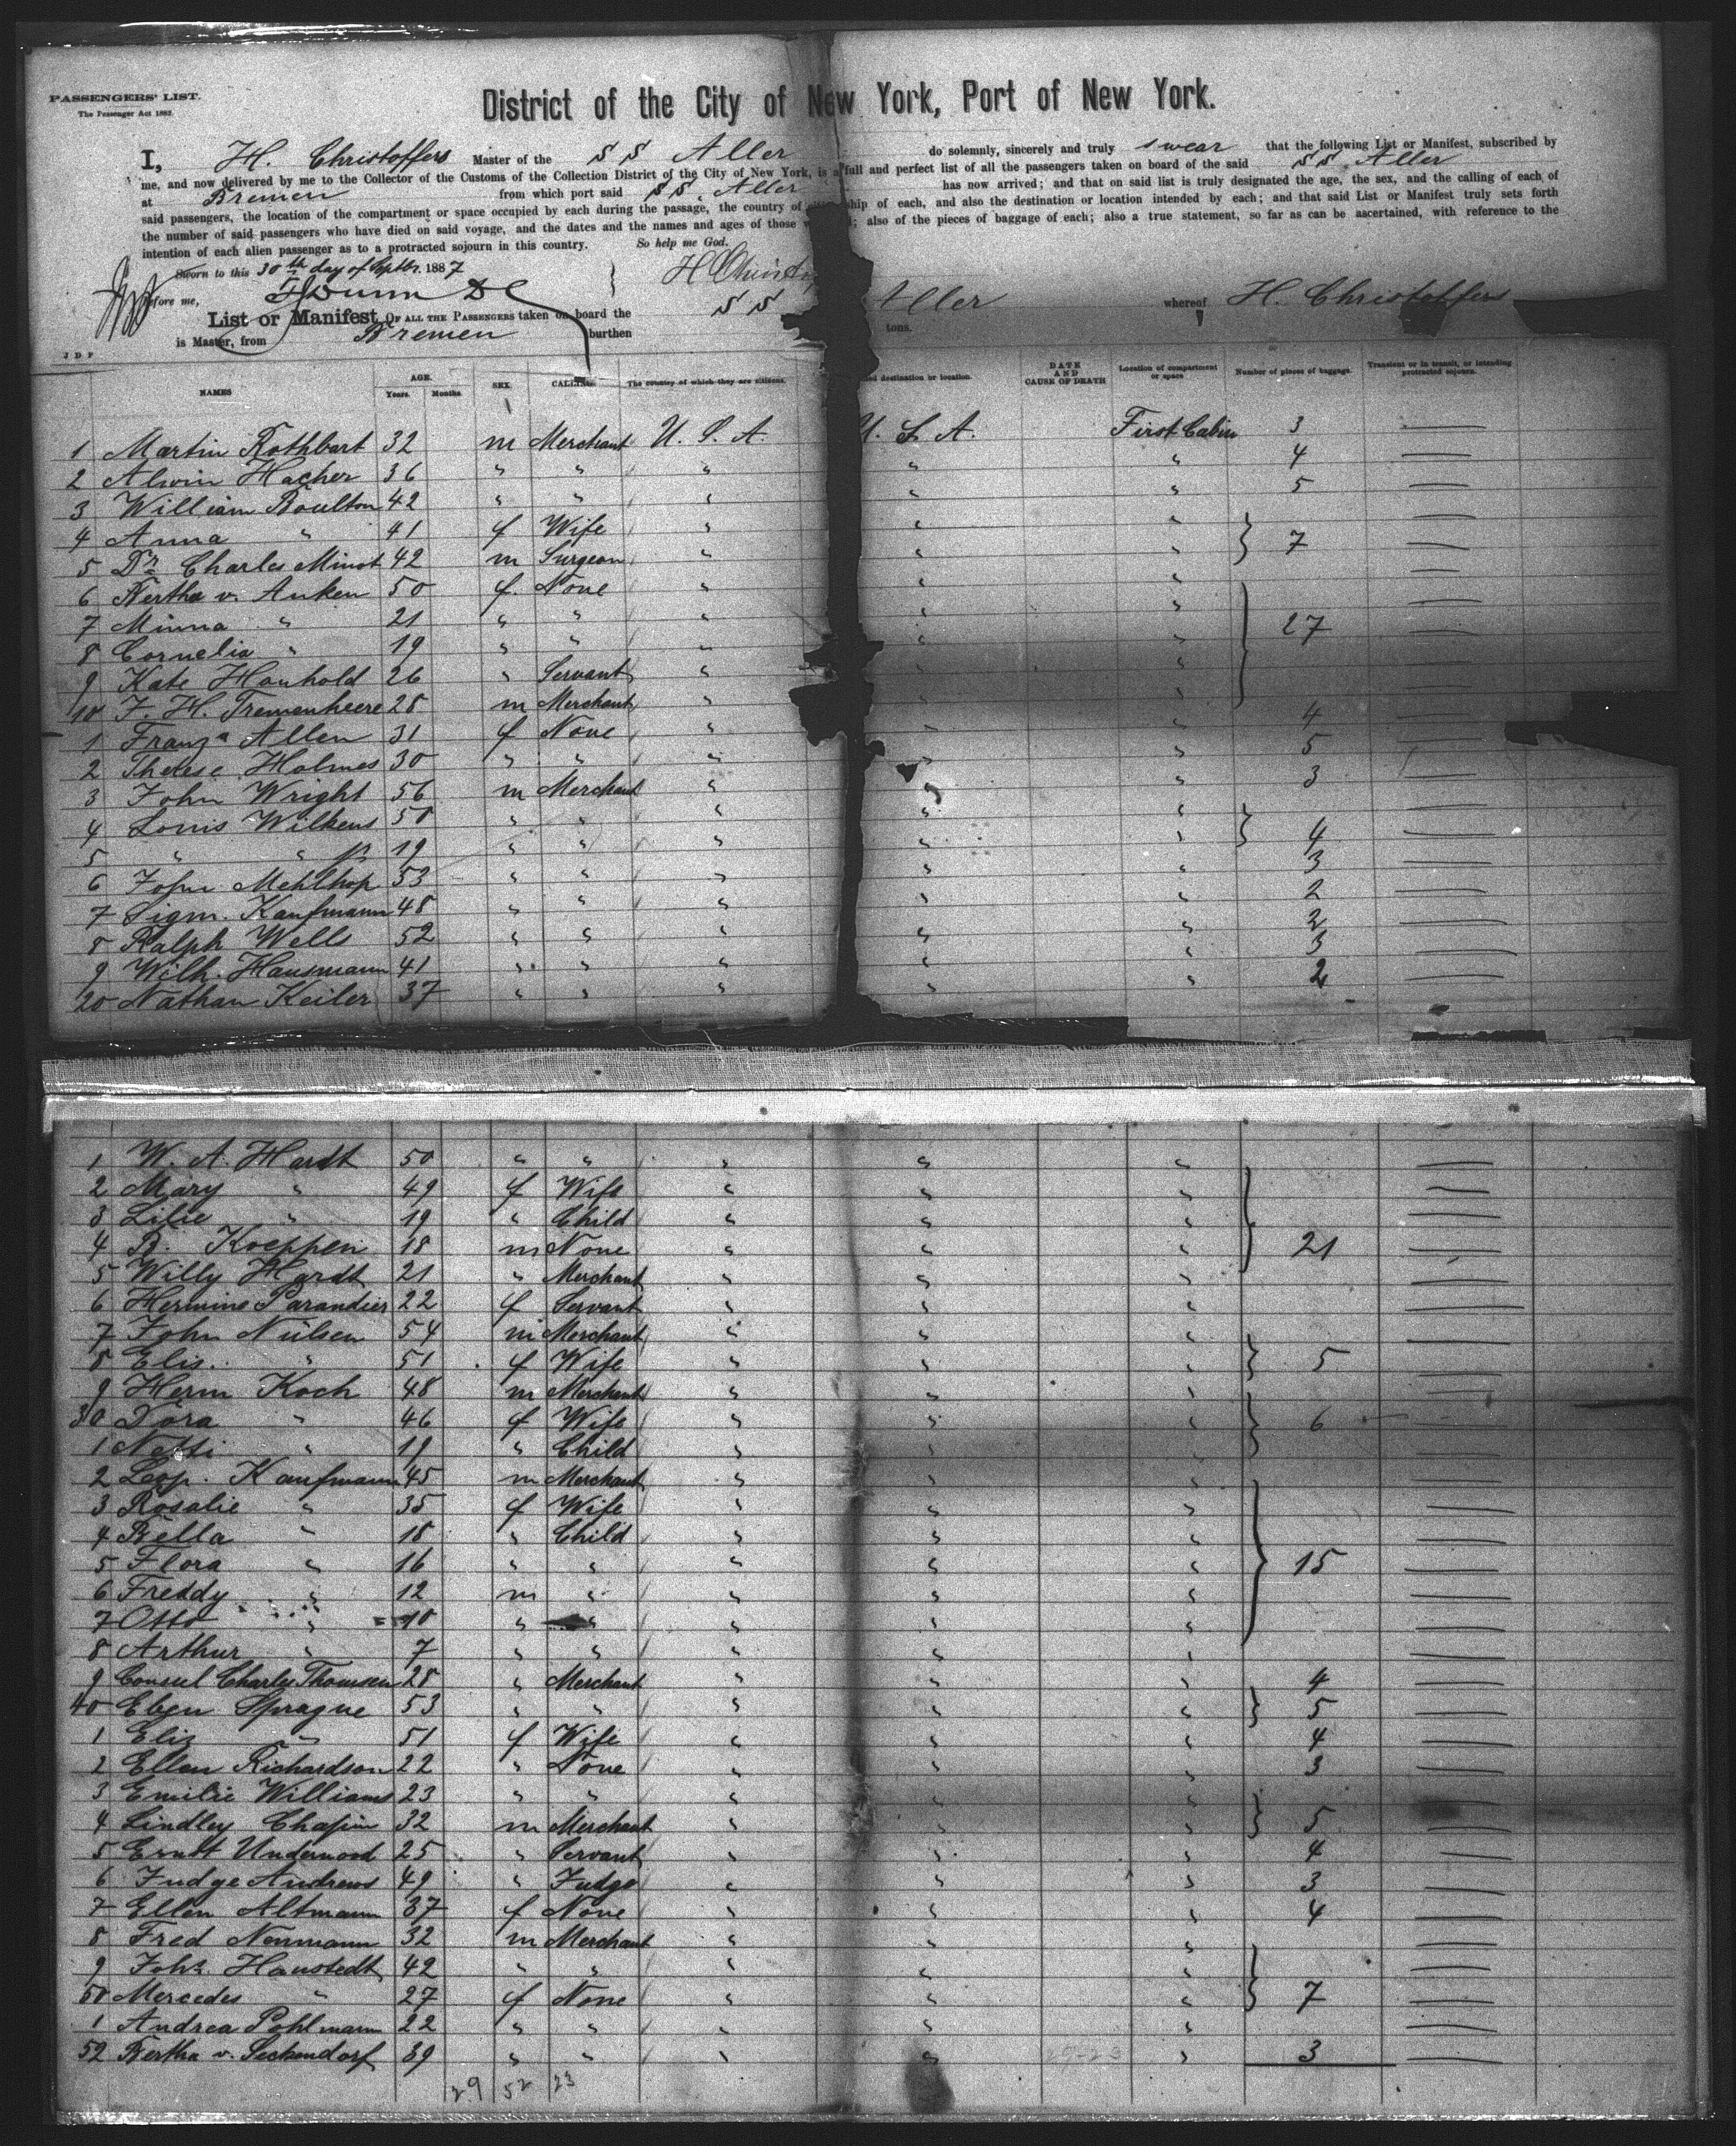 PASSENGERS' LIST.
The Passenger Act 1882.
District of the City of New York, Port of New York.
I, H. Christoffers Master of the SS Aller do solemnly, sincerely and truly swear that the following List or Manifest, subscribed by
me, and now delivered by me to the Collector of the Customs of the Collection District of the City of New York, is a full and perfect list of all the passengers taken on board of the said SS. Aller
at Bremen from which port said SS. Aller has now arrived; and that on said list is truly designated the age, the sex, and the calling of each of
said passengers, the location of the compartment or space occupied by each during the passage, the country of citizenship of each, and also the destination or location intended by each; and that said List or Manifest truly sets forth
the number of said passengers who have died on said voyage, and the dates and the names and ages of those who died; also of the pieces of baggage of each; also a true statement, so far as can be ascertained, with reference to the
intention of each alien passenger as to a protracted sojourn in this country. So help me God.
Sworn to this 30th day of Septbr. 1887 H Christof
before me,
List or Manifest OF ALL THE PASSENGERS taken on board the SS Aller whereof H. Christoffers
is Master, from Bremen burthen tons.
J D P
NAMES AGE. Years. Months. SEX. CALLING. The country of which they are citizens. ed destination or location. DATE AND CAUSE OF DEATH Location of compartment or space Number of pieces of baggage. Transient or in transit, or intending protracted sojourn.
1 Martin Rothbart 32 m Merchant U. S. A. U. S. A. First Cabin 3 —
2 Alwin Hacher 36 " " " " " 4 —
3 William Boulton 42 " " " " " 5 —
4 Anna " 41 f Wife " " " —
5 Dr. Charles Minot 42 m Surgeon " " " 7 —
6 Bertha v. Anken 50 f. None " " " —
7 Minna " 21 " " " " " 27 —
8 Cornelia " 19 " " " " " —
9 Kate Hanhold 26 " Servant " " " —
10 F. H. Tremenheere 28 m Merchant " " " 4 —
1 Franz Allen 31 f None " " " 5 —
2 Therese Holmes 30 " " " " " 3 —
3 John Wright 56 m Merchant " " "
4 Louis Wilkens 58 " " " " " 4 —
5 " " jr 19 " " " " " 3 —
6 John Mehlhop 53 " " " " " 2 —
7 Sigm. Kaufmann 48 " " " " " 2 —
8 Ralph Wells 52 " " " " " 3 —
9 Wilh. Hausmann 41 " " " " " 2 —
20 Nathan Keiler 37 " " " " " —
1 W. A. Hardt 50 " " " " " —
2 Mary " 49 f Wife " " " —
3 Lilie " 19 " Child " " " —
4 B. Koeppen 18 m None " " " 21 —
5 Willy Hardt 21 " Merchant " " " —
6 Hermine Parandier 22 f Servant " " " —
7 John Nülsen 54 m Merchant " " " —
8 Elis. " 51 f Wife " " " 5 —
9 Herm Koch 48 m Merchant " " " —
30 Dora " 46 f Wife " " " 6 —
1 Netti " 19 " Child " " " —
2 Leop. Kaufmann 45 m Merchant " " " —
3 Rosalie " 35 f Wife " " " —
4 Bella " 18 " Child " " " —
5 Flora " 16 " " " " " 15 —
6 Freddy " 12 m " " " " —
7 Otto " 10 " " " " " —
8 Arthur " 7 " " " " " —
9 Consul Charles Thomsen 28 " Merchant " " " 4 —
40 Eben Sprague 53 " " " " " 5 —
1 Eliz " 51 f Wife " " " 4 —
2 Ellen Richardson 22 " None " " " 3 —
3 Emilie Williams 23 " " " " "
4 Lindley Chapin 32 m Merchant " " " 5 —
5 Ernst Underwood 25 " Servant " " " 4 —
6 Judge Andrews 49 " Judge " " " 3 —
7 Ellen Altmann 37 f None " " " 4 —
8 Fred Neumann 32 m Merchant " " " —
9 Johs. Hanstedt 42 " " " " " —
50 Mercedes " 27 f None " " " 7 —
1 Andrea Pohlmann 22 " " " " " —
52 Bertha v. Seckendorf 39 " " " " " 3 —
29 52 23